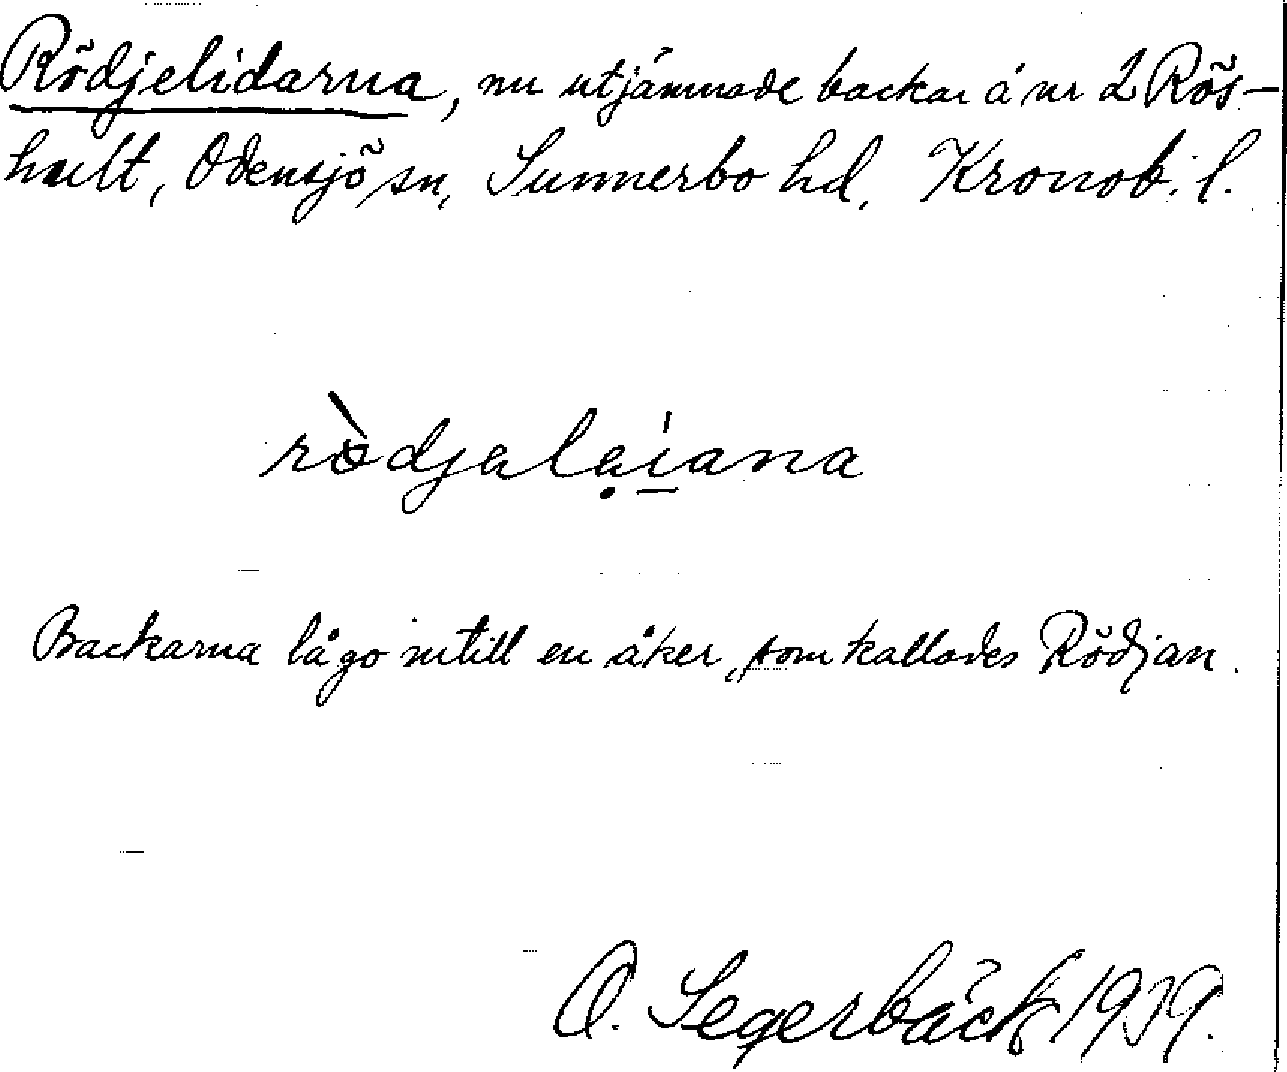 Rödjelidarna, nu utjämnade backar å nr 2 Rös-
hult, Odensjö sn, Sunnerbo hd, Kronob. l.
rò̈djalại̲ana
Backarna lågo intill en åker, som kallades Rödjan.
O. Segerbäck 1939.